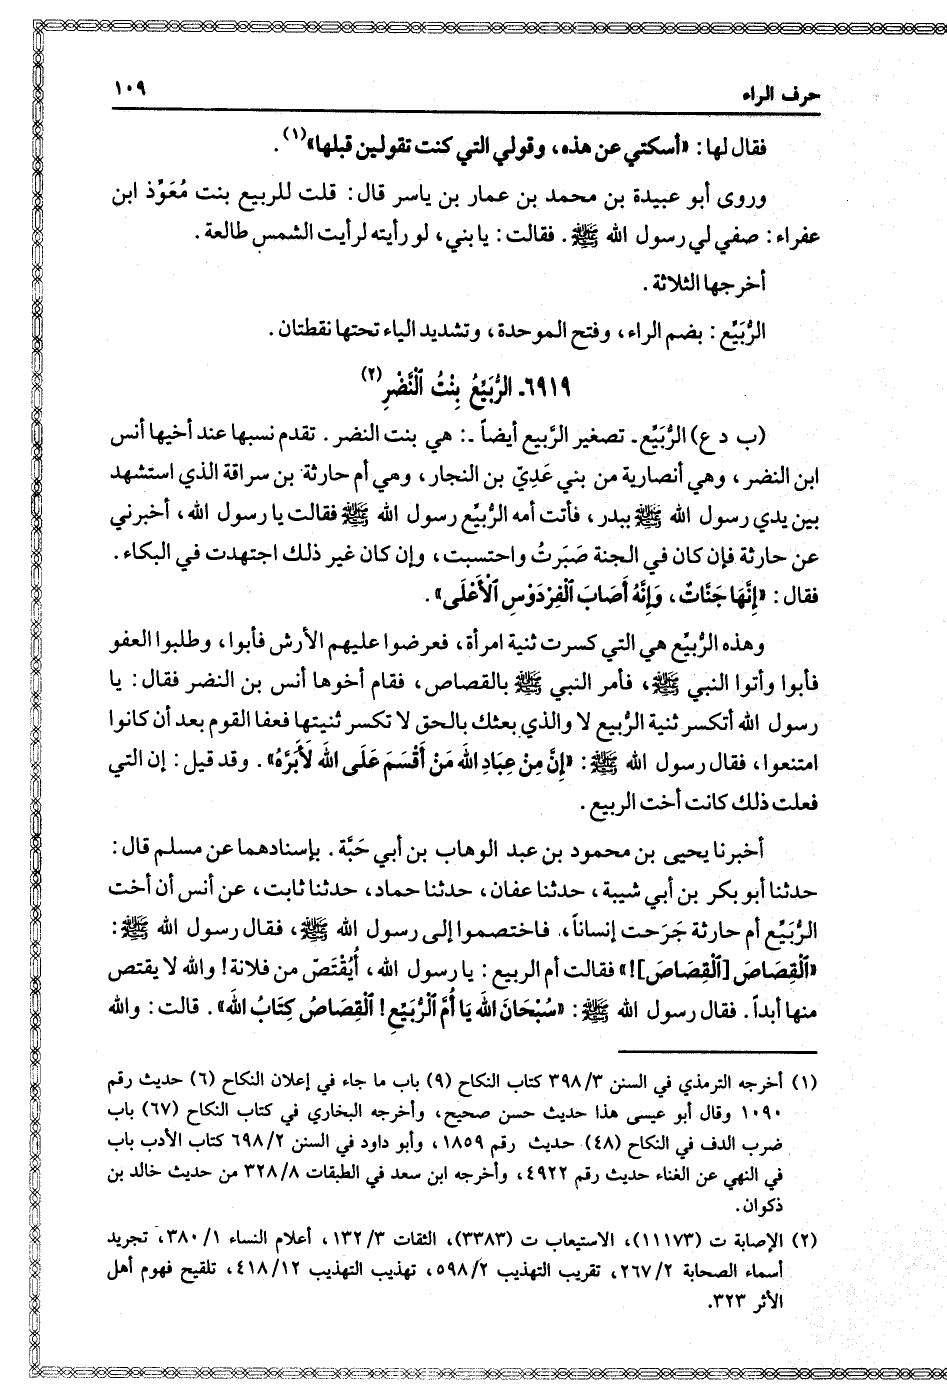 حرف الراء ١٠٩
فقال لها: «أسكتي عن هذه، وقولي التي كنت تقولين قبلها»(١).
وروى أبو عبيدة بن محمد بن عمار بن ياسر قال: قلت للربيع بنت مُعَوِّذ ابن
عفراء: صفي لي رسول الله ﷺ. فقالت: يا بني، لو رأيته لرأيت الشمس طالعة.
أخرجها الثلاثة.
الرُّبَيِّع: بضم الراء، وفتح الموحدة، وتشديد الياء تحتها نقطتان.
٦٩١٩ـ الرُّبَيِّعُ بِنْتُ ٱلْنَّضْرِ(٢)
(ب د ع) الرُّبَيِّع ـ تصغير الرَّبيع أيضاً ـ: هي بنت النضر. تقدم نسبها عند أخيها أنس
ابن النضر، وهي أنصارية من بني عَدِيّ بن النجار، وهي أم حارثة بن سراقة الذي استشهد
بين يدي رسول الله ﷺ ببدر، فأتت أمه الرُّبيِّع رسول الله ﷺ فقالت يا رسول الله، أخبرني
عن حارثة فإن كان في الجنة صَبَرتُ واحتسبت، وإن كان غير ذلك اجتهدت في البكاء.
فقال: «إِنَّهَا جَنَّاتٌ، وَإِنَّهُ أَصَابَ ٱلْفِرْدَوْسِ ٱلْأَعْلَى».
وهذه الرُّبيِّع هي التي كسرت ثنية امرأة، فعرضوا عليهم الأرش فأبوا، وطلبوا العفو
فأبوا وأتوا النبي ﷺ، فأمر النبي ﷺ بالقصاص، فقام أخوها أنس بن النضر فقال: يا
رسول الله أتكسر ثنية الرُّبيع لا والذي بعثك بالحق لا تكسر ثنيتها فعفا القوم بعد أن كانوا
امتنعوا، فقال رسول الله ﷺ: «إِنَّ مِنْ عِبَادِ الله مَنْ أَقْسَمَ عَلَى الله لَأَبَرَّهُ». وقد قيل: إن التي
فعلت ذلك كانت أخت الربيع.
أخبرنا يحيى بن محمود بن عبد الوهاب بن أبي حَبَّة. بإسنادهما عن مسلم قال:
حدثنا أبو بكر بن أبي شيبة، حدثنا عفان، حدثنا حماد، حدثنا ثابت، عن أنس أن أخت
الرُّبَيِّع أم حارثة جَرَحت إنساناً، فاختصموا إلى رسول الله ﷺ، فقال رسول الله ﷺ:
«ٱلْقِصَاصَ [ٱلْقِصَاصَ]!» فقالت أم الربيع: يا رسول الله، أَيُقْتَصّ من فلانة! والله لا يقتص
منها أبداً. فقال رسول الله ﷺ: «سُبْحَانَ الله يَا أُمَّ ٱلْرُّبَيِّعِ! ٱلْقِصَاصُ كِتَابُ الله». قالت: والله
(١) أخرجه الترمذي في السنن ٣/ ٣٩٨ كتاب النكاح (٩) باب ما جاء في إعلان النكاح (٦) حديث رقم
١٠٩٠ وقال أبو عيسى هذا حديث حسن صحيح، وأخرجه البخاري في كتاب النكاح (٦٧) باب
ضرب الدف في النكاح (٤٨) حديث رقم ١٨٥٩، وأبو داود في السنن ٢/ ٦٩٨ كتاب الأدب باب
في النهي عن الغناء حديث رقم ٤٩٢٢، وأخرجه ابن سعد في الطبقات ٨/ ٣٢٨ من حديث خالد بن
ذكوان.
(٢) الإصابة ت (١١١٧٣)، الاستيعاب ت (٣٣٨٣)، الثقات ٣/ ١٣٢، أعلام النساء ١/ ٣٨٠، تجريد
أسماء الصحابة ٢/ ٢٦٧، تقريب التهذيب ٢/ ٥٩٨، تهذيب التهذيب ١٢/ ٤١٨، تلقيح فهوم أهل
الأثر ٣٢٣.